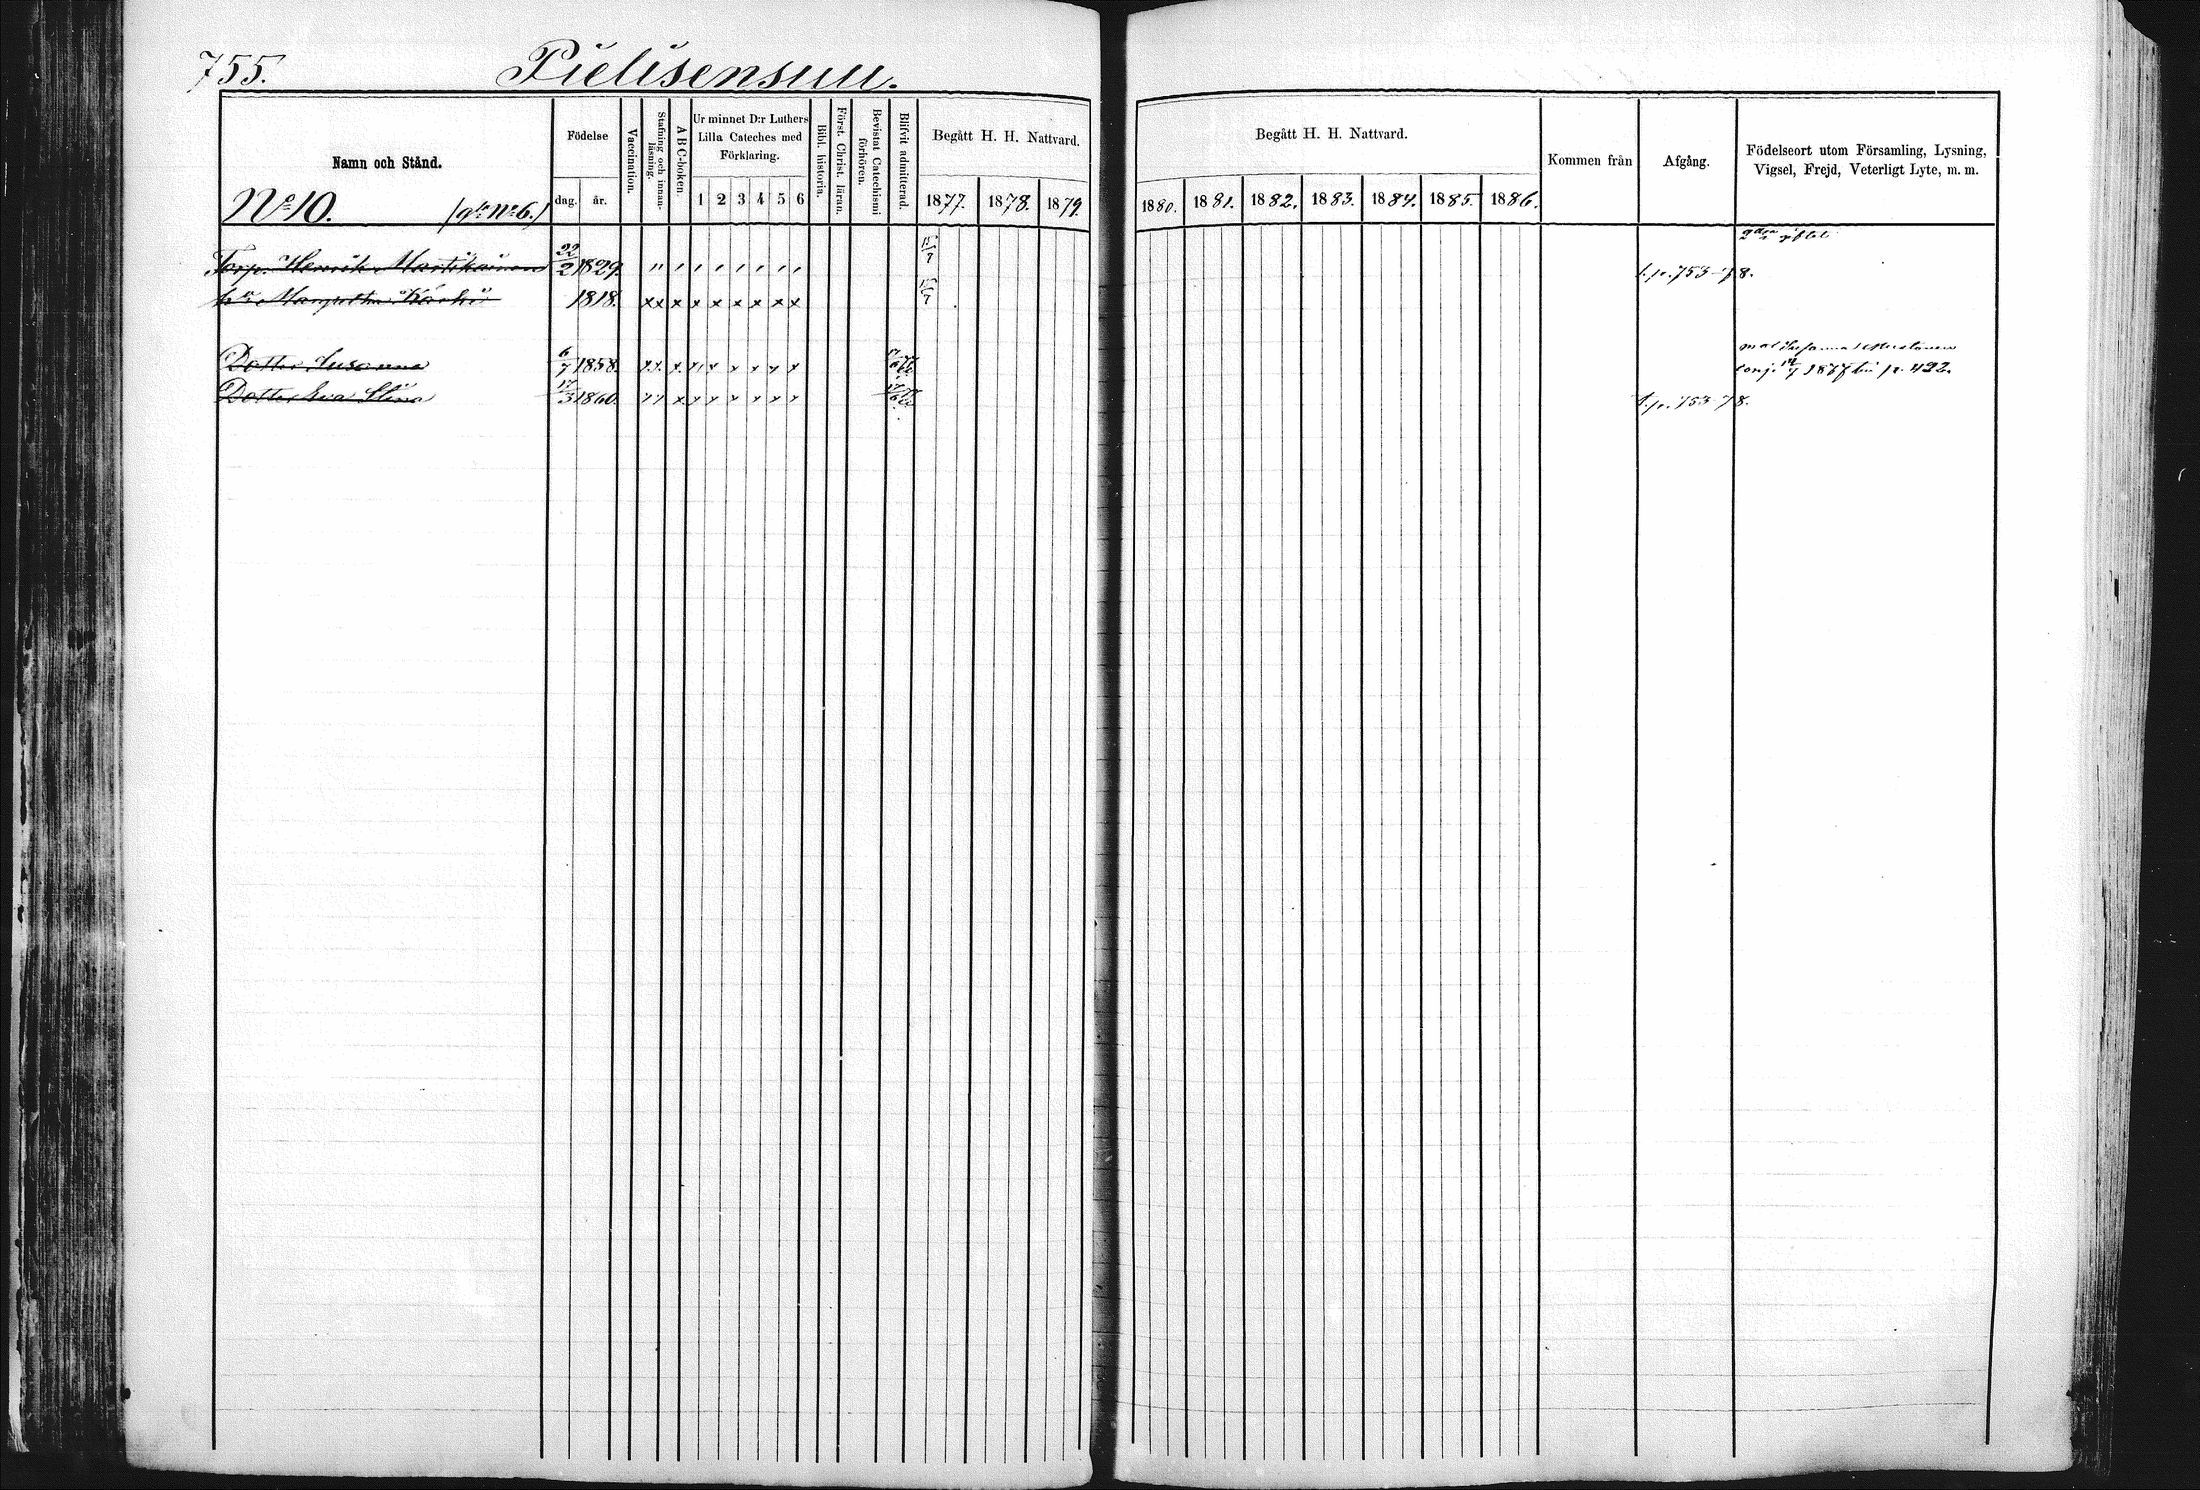 755. Pielisensuu.
Namn och Stånd.
No 10. (gl. No 6.)
Födelse
dag. år.
Vaccination.
Stafning och innanläsning.
ABC-boken.
Ur minnet D:r Luthers Lilla Cateches med Förklaring.
1 2 3 4 5 6
Bibl. historia.
Först. Christ. läran.
Bevistat Catechismi förhören.
Blifvit admitterad.
Begått H. H. Nattvard.
1877. 1878. 1879.
Begått H. H. Nattvard.
1880. 1881. 1882. 1883. 1884. 1885. 1886.
Kommen från
Afgång.
Födelseort utom Församling, Lysning, Vigsel, Frejd, Veterligt Lyte, m. m.
Torp. Henrik Martikainen 22/2 1829. " ' ' ' ' ' ' ' 15/7 t. p. 753-78. 2dra giftet
h:u Margeltha Kärki 1818. x x x x x x x x x 15/7
Dotter Susanna 6/7 1858. x x x x x x x x x conj. 1877 p. 422.
Dotter Eva Stina 17/3 1860. x x x x x x x x x t. p. 753-78.